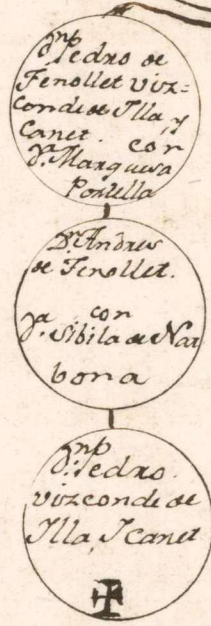 Dn Pedro de
Fenollet viz=
conde de Illa, y
Canet. con
Da. Marquesa
Portella
Dn. Andres
de Fenollet.
con
Da. Sibila de Nar
bona
Dn. Pedro.
vizconde de
Illa, Y Canet